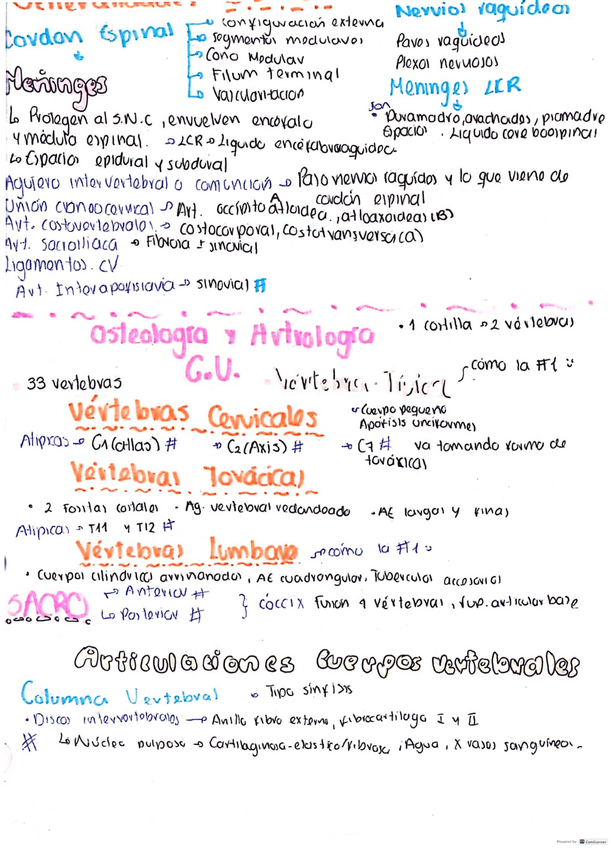 Generalidades
Cordon Espinal
configuración externa
segmentos modulares
Cono Modular
Filum terminal
Vascularitación
Nervios raquídeos
Pares raquídeos
Plexos nerviosos
Meninges LCR
son
Duramadre, aracnoides, piamadre
Espacios . Liquido cerebroespinal
Meninges
Protegen al S.N.C , envuelven encéfalo
y médula espinal. LCR Liquido encefaloraquideo
Espacios epidural y subdural
Agujero intervertebral o conjunción Paso nervios raquídeos y lo que viene de
cordón espinal
Unión craneocervical Art. occipito Atloidea, atloaxoideas (B)
Art. costovertebrales costocorporal, costotransversa(a)
Art. sacroiliaca Fibrosa + sinovial
Ligamentos. CV
Art. Interapofisiaria sinovial #
Osteología y Artrología
C.V.
• 1 costilla 2 vértebras
33 vertebras
Vértebra Típica
cómo la #1
Vértebras Cervicales
Cuerpo pequeño
Apófisis unciformes
Atípicas C1 (atlas) # C2 (Axis) # C7 # va tomando forma de
torácicas
Vértebras Torácicas
• 2 Fositas costales - Ag. vertebral redondeado - AE largas y finas
Atípicas T11 y T12 #
Vértebras Lumbares cómo la #1
• Cuerpos cilíndricos arriñonados, AE cuadrangular, Tubérculos accesorios
SACRO
Anterior #
Posterior #
} cóccix Fusion 4 vértebras, sup. articular base
Articulaciones Cuerpos vertebrales
Columna Vertebral • Tipo sínfisis
• Discos intervertebrales Anillo fibro externo, fibrocartílago I y II
# Núcleo pulposo Cartilaginosa-elastico/fibrosa, Agua, X vasos sanguíneos.
Powered by CS CamScanner